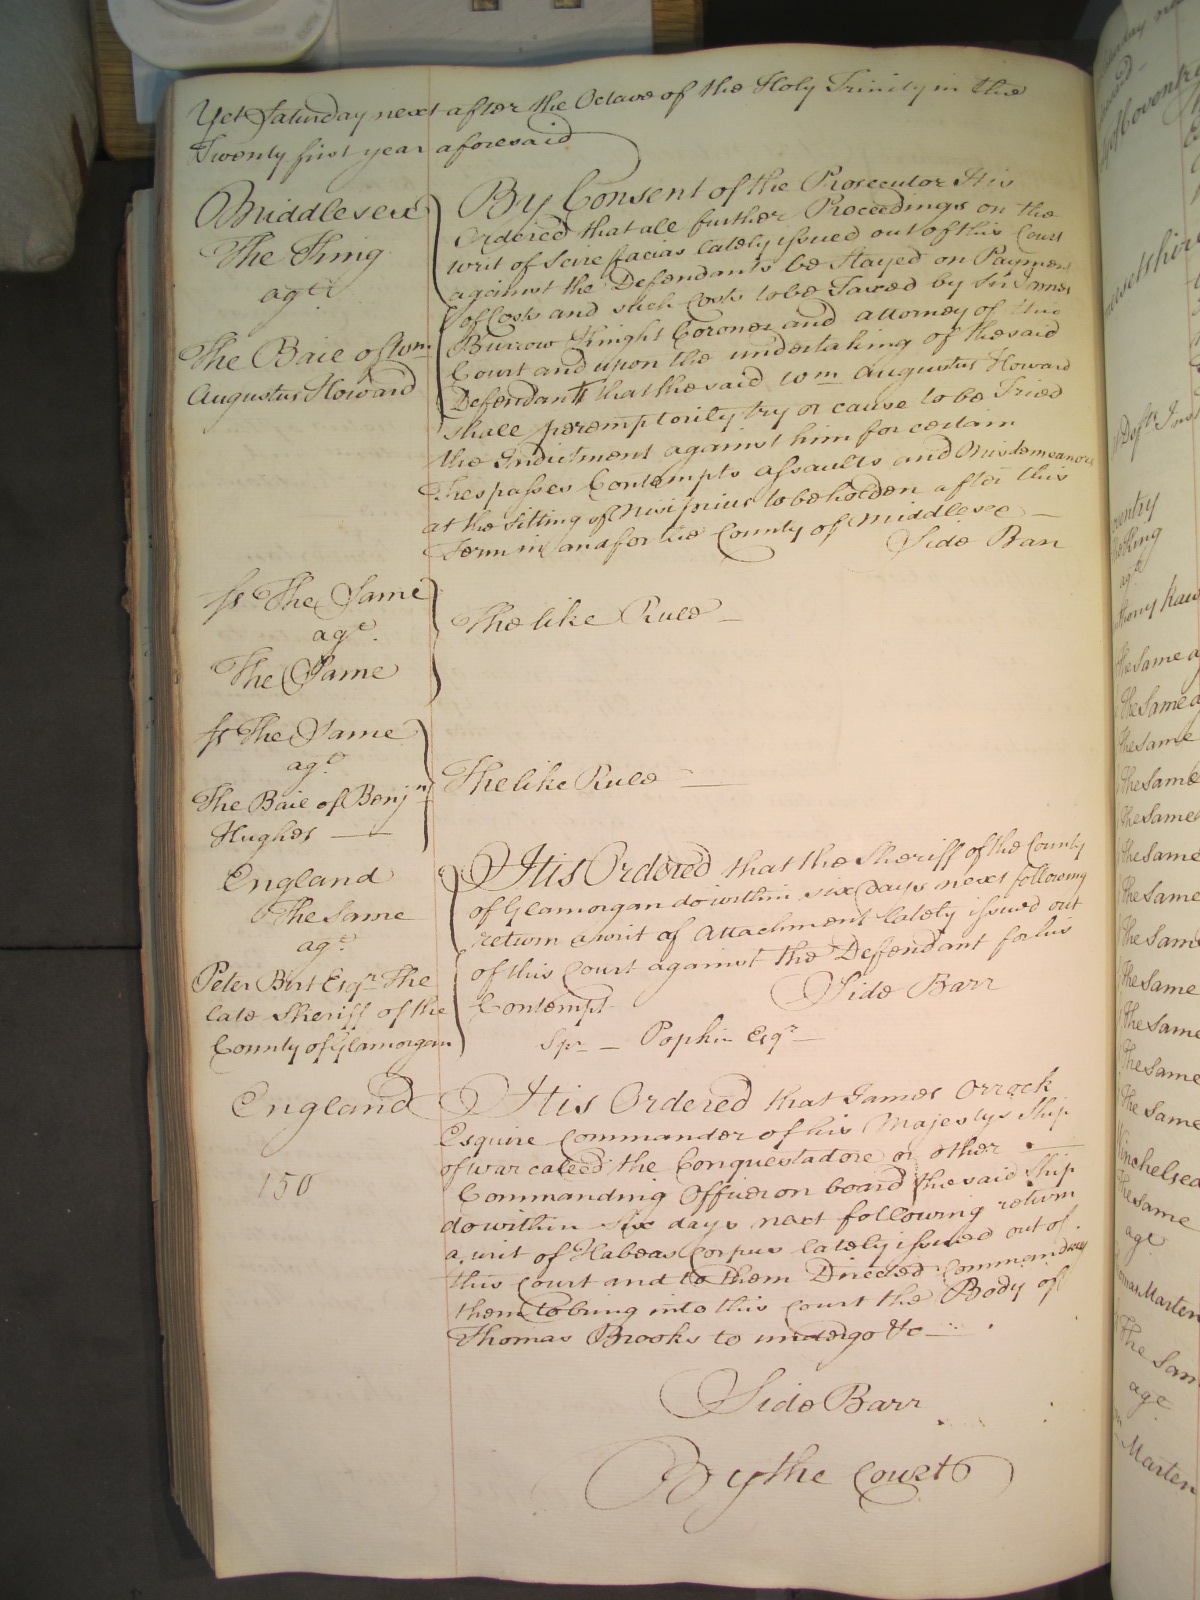 Yet Saturday next after the Octave of the Holy Trinity in the
Twenty first year aforesaid
Middlesex
The King
agt.
The Bail of Wm.
Augustus Howard
By Consent of the Prosecutor It is
Ordered that all further Proceedings on the
writ of Scire facias lately issued out of this Court
against the Defendants be Stayed on Payment
of Costs and such Costs to be Taxed by Sir James
Burrow Knight Coroner and attorney of this
Court and upon the undertaking of the said
Defendants that the said Wm Augustus Howard
shall peremptorily try or cause to be Tried
the Indictment against him for certain
Trespasses Contempts assaults and Misdemeanors
at the Sitting of Nisi prius to be holden after this
Term in and for the County of Middlesex
Side Barr
fs The Same
agt.
The Same
The like Rule
fs The Same
agt.
The Bail of Benjn.
Hughes
The like Rule
England
The Same
agt.
Peter Birt Esqr. The
late Sheriff of the
County of Glamorgan
It is Ordered that the Sheriff of the County
of Glamorgan do within six Days next following
return a writ of Attachment lately issued out
of this Court against the Defendant for his
Contempt
Side Barr
Spr Popkin Esqr.
England
150
It is Ordered that James Orrock
Esquire Commander of his Majestys Ship
of war called the Conquestadore or other
Commanding Officer on board the said Ship
do within six days next following return
a writ of Habeas Corpus lately issued out of
this Court and to them Directed Commanding
them to bring into this Court the Body of
Thomas Brooks to undergo &c
Side Barr
By the Court
of Coventry
The Same
The Same
The Same
The Same
The Same
The Same
The Same
The Same
The Same
The Same
The Same
The Same
Winchelsea
The Same
agt
Thomas Marten
The Same
agt
Marten